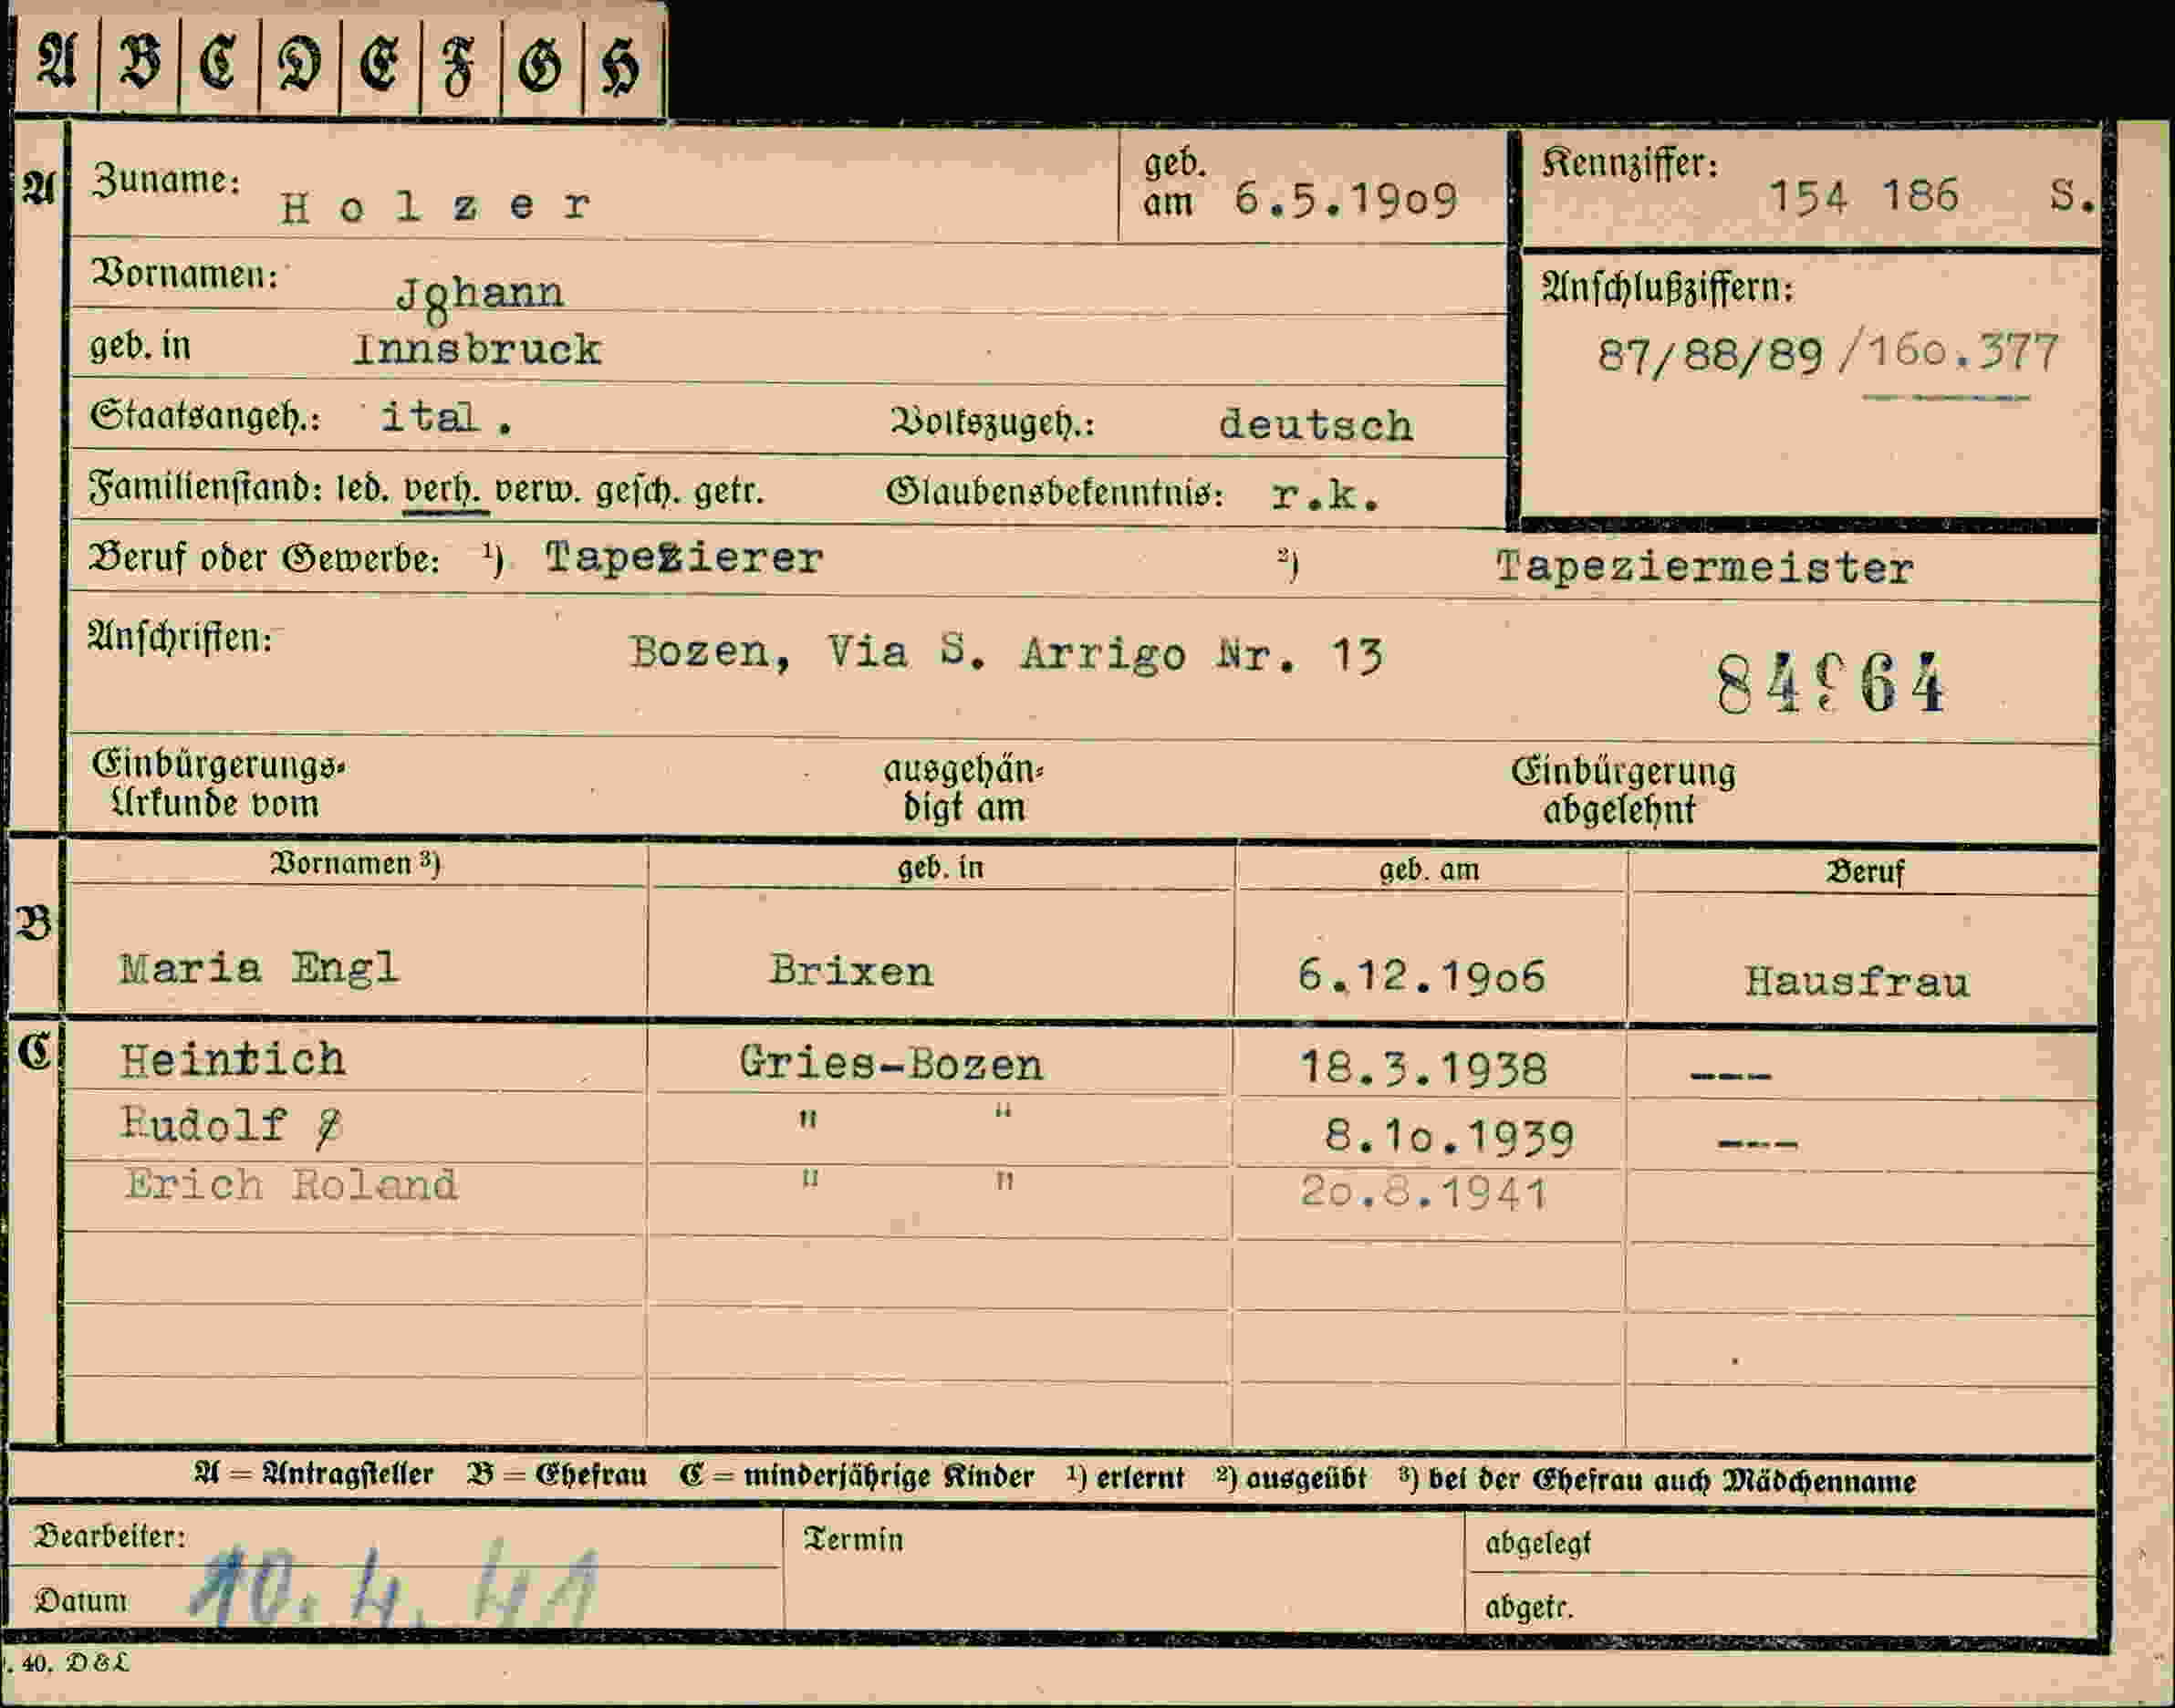 A B C D E F G H
A Zuname: Holzer geb. am 6.5.1909 Kennziffer: 154 186 S.
Vornamen: Johann Anschlußziffern:
geb. in Innsbruck 87/88/89/160.377
Staatsangeh.: ital. Volkszugeh.: deutsch
Familienstand: led. verh. verw. gesch. getr. Glaubensbekenntnis: r.k.
Beruf oder Gewerbe: ¹) Tapezierer ²) Tapeziermeister
Anschriften: Bozen, Via S. Arrigo Nr. 13
Einbürgerungs- ausgehän- Einbürgerung
Urkunde vom digt am abgelehnt
Vornamen ³) geb. in geb. am Beruf
B Maria Engl Brixen 6.12.1906 Hausfrau
C Heinrich Gries-Bozen 18.3.1938 ---
Rudolf " " 8.10.1939 ---
Erich Roland " " 20.8.1941
A = Antragsteller B = Ehefrau C = minderjährige Kinder ¹) erlernt ²) ausgeübt ³) bei der Ehefrau auch Mädchenname
Bearbeiter: Termin abgelegt
Datum 10.4.41 abgetr.
. 40. D & L